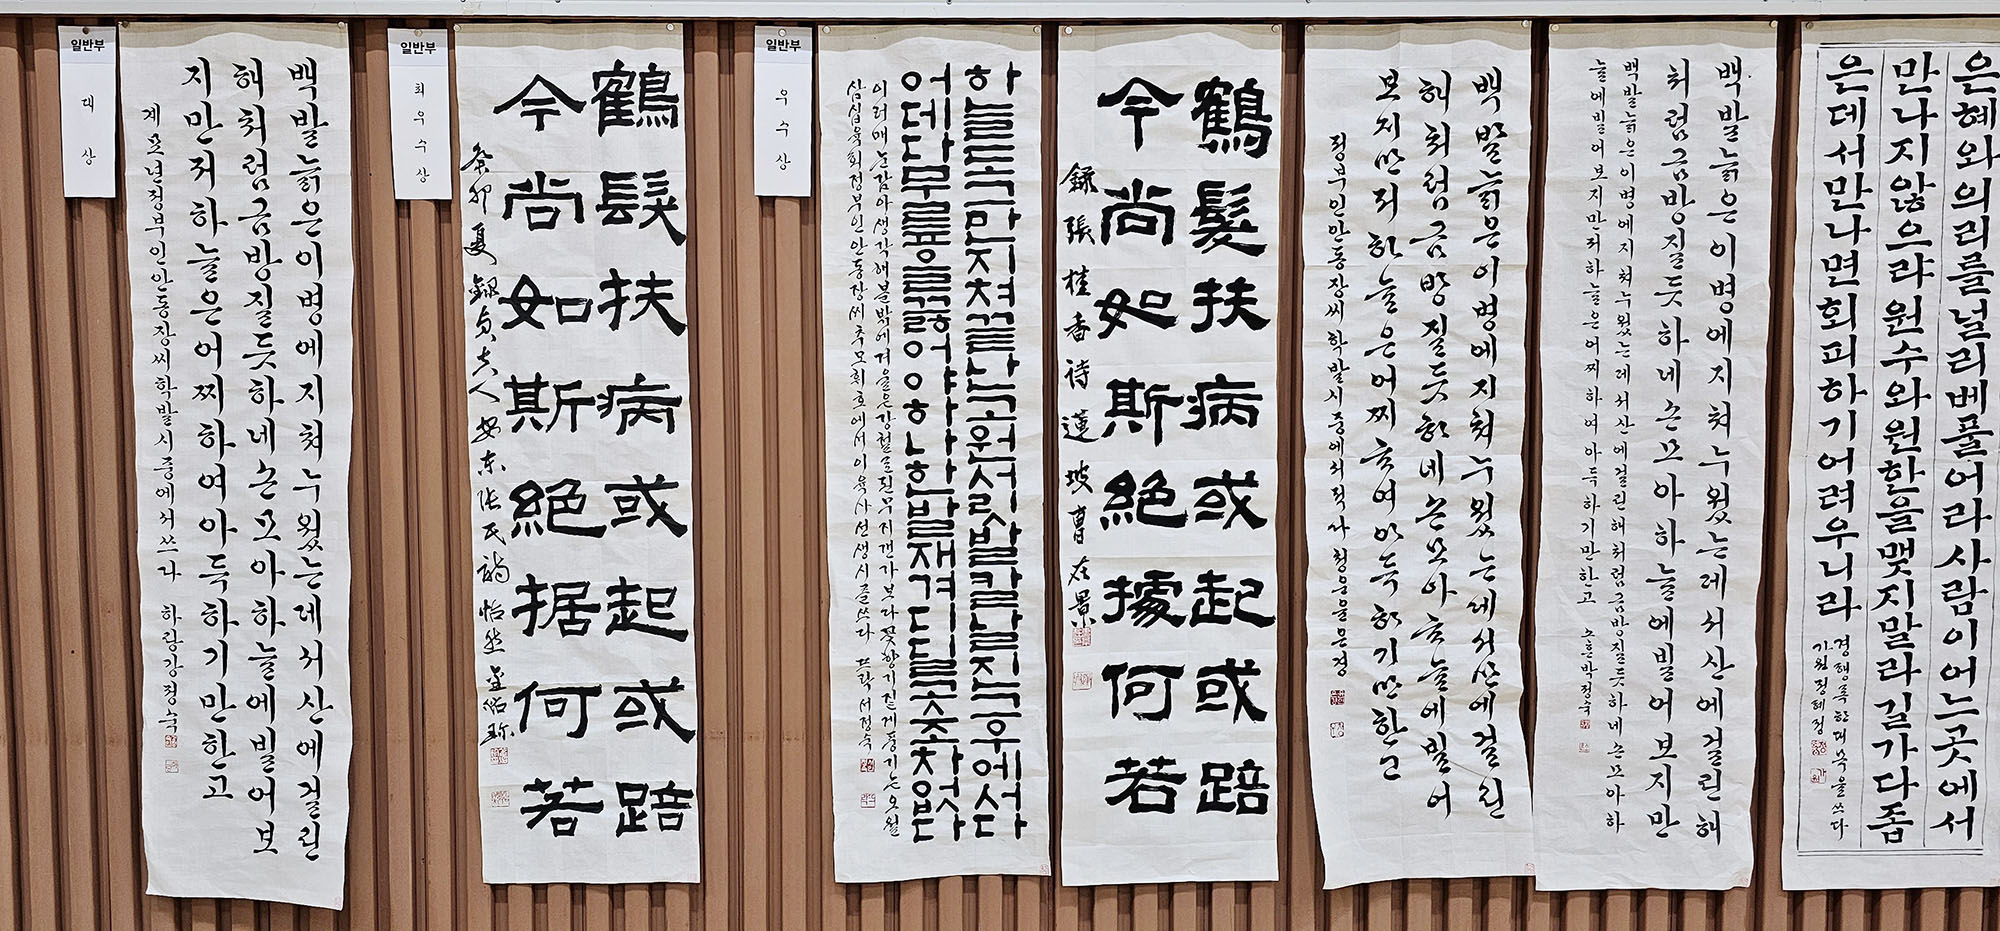 일반부
대상
백발늙은이병에지쳐누웠는데서산에걸린
해처럼금방질듯하네손모아하늘에빌어보
지만저하늘은어찌하여아득하기만한고
계묘년정부인안동장씨학발시중에서쓰다 하랑강정숙
일반부
최우수상
鶴髮扶病或起或踣
今尙如斯絕据何若
癸卯夏錄貞夫人安東張氏詩怡然
일반부
우수상
하늘도그만지쳐끝난고원서릿발칼날진그우에서다
어데다무릎을꿇어야하나한발재겨디딜곳조차없다
이러매눈감아생각해볼밖에겨울은강철로된무지갠가보다꽃향기짙게풍기는오월
삼십육회정부인안동장씨추모휘호에서이육사선생시를쓰다 뜨락서정숙
鶴髮扶病或起或踣
今尙如斯絕據何若
錄張桂香詩蓮坡曺在景
백발늙은이병에지쳐누웠는데서산에걸린
해처럼금방질듯하네손모아하늘에빌어
보지만저하늘은어찌하여아득하기만한고
정부인안동장씨학발시중에서적다 청운윤은경
백발늙은이병에지쳐누웠는데서산에걸린해
처럼금방질듯하네손모아하늘에빌어보지만
백발늙은이병에지쳐누웠는데서산에걸린해처럼금방질듯하네손모아하
늘에빌어보지만저하늘은어찌하여아득하기만한고 박정숙
은혜와의리를널리베풀어라사람이어느곳에서
만나지않으랴원수와원한을맺지말라길가다좁
은데서만나면회피하기어려우니라
경행록한대목을쓰다
가원정혜정